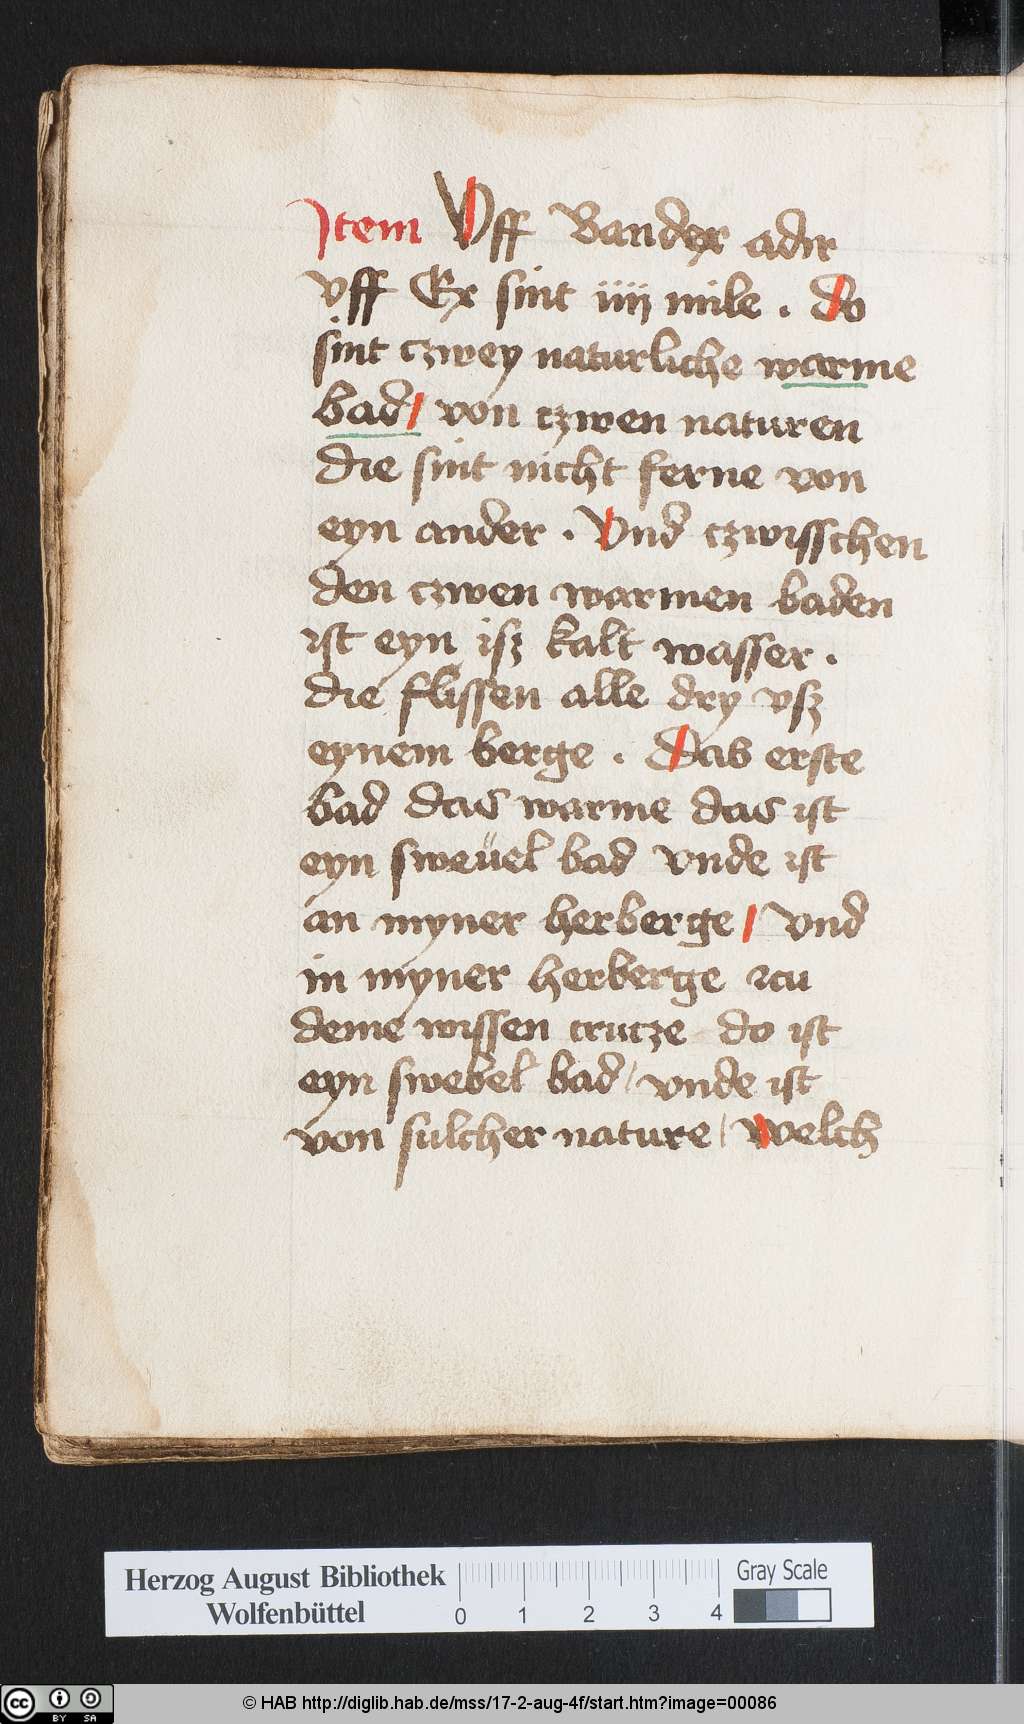 Item Vff Bander adir
vff Ex sint iiij mile . do
sint czwey naturliche warme
bad von czwen naturen
die sint nicht ferne von
eyn ander . Vnd czwisschen
den czwen warmen baden
ist eyn isz kalt wasser .
die flissen alle dry vsz
eynem berge . Das erste
bad das warme das ist
eyn sweuel bad vnde ist
an myner herberge Vnd
in myner herberge zcu
deme wissen crucze do ist
eyn swebel bad / vnde ist
von sulcher nature / Welch
Herzog August Bibliothek
Wolfenbüttel
0 1 2 3 4
Gray Scale
cc BY SA
© HAB http://diglib.hab.de/mss/17-2-aug-4f/start.htm?image=00086